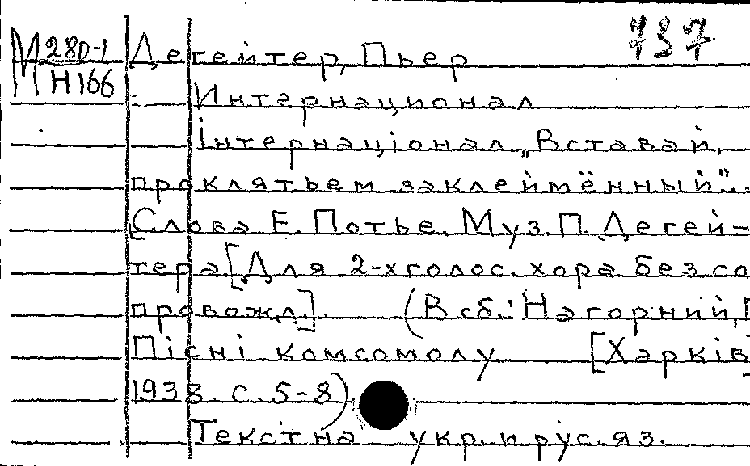 М 280-1 Дегейтер, Пьер 737
Н166
Интернационал
Інтернаціонал „Вставай,
проклятьем заклеймённый"..
Слова Е. Потье. Муз. П. Дегей-
тера [Для 2-хголос. хора без со
провожд]. (В сб.: Нагорний,
Пісні комсомолу [Харків]
1938. с. 5-8)
Текст на укр. и рус. яз.